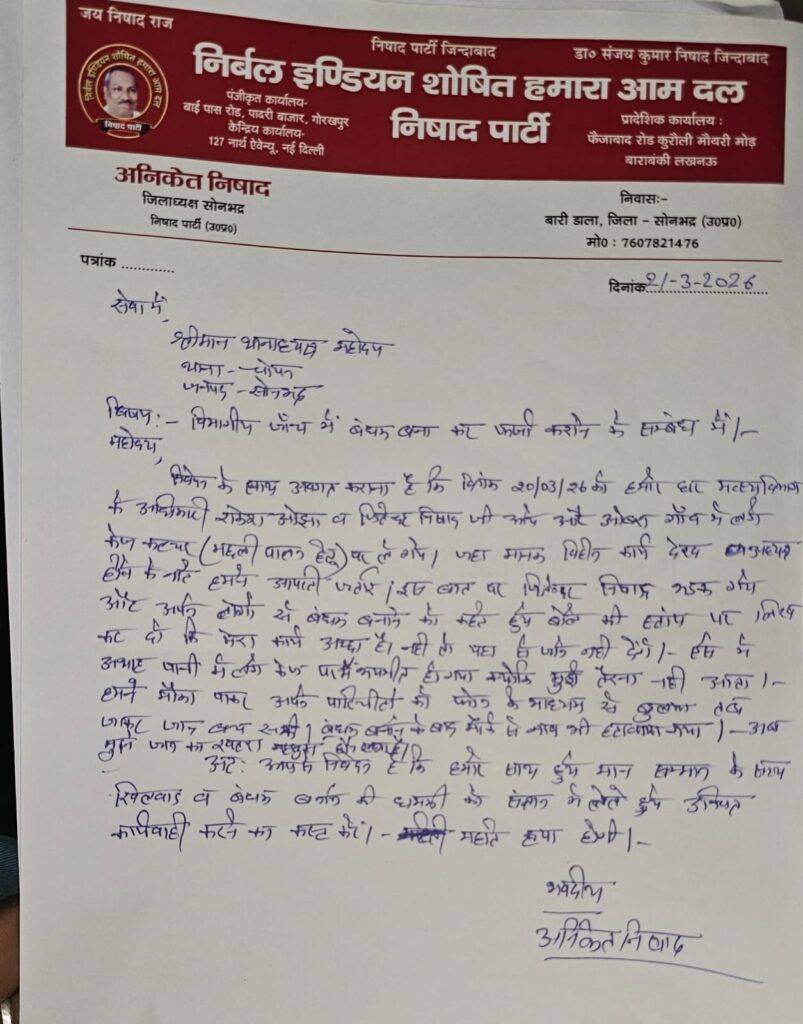 जय निषाद राज
निषाद पार्टी जिन्दाबाद
डा० संजय कुमार निषाद जिन्दाबाद
निर्बल इण्डियन शोषित हमारा आम दल
निषाद पार्टी
निर्बल इण्डियन शोषित हमारा आम दल
निषाद पार्टी
पंजीकृत कार्यालय-
बाई पास रोड, पादरी बाजार, गोरखपुर
केन्द्रिय कार्यालय-
127 नार्थ ऐवेन्यू, नई दिल्ली
प्रादेशिक कार्यालय :
फैजाबाद रोड कुरौली मौथरी मोड़
बाराबंकी लखनऊ
अनिकेत निषाद
जिलाध्यक्ष सोनभद्र
निषाद पार्टी (उ०प्र०)
निवासः-
बारी डाला, जिला - सोनभद्र (उ०प्र०)
मो० : 7607821476
पत्रांक ............
दिनांक 21-3-2026
सेवा में,
श्रीमान थानाध्यक्ष महोदय
थाना - चोपन
जनपद - सोनभद्र
विषय :- विभागीय जाँच में बंधक बना कर फर्जी कराने के सम्बंध में।-
महोदय,
के साथ अवगत कराना है कि दिनांक 20/03/26 को हमारे घर मत्स्य विभाग
के अधिकारी राकेश ओझा व जितेन्द्र निषाद जी आये और ओबरा गाँव में लगे
केज कल्चर (मछली पालन हेतु) पर ले गये। जहा मानक विहीन कार्य देख
होने के नाते हमने आपत्ती जताई। इस बात पर जितेन्द्र निषाद भड़क गये
और अपने लोगो से बंधक बनाने को कहते हुए बोले की स्टांप पर लिख
कर दो कि मेरा कार्य अच्छा है। नही तो यहा से जाने नही देंगे।- में
अथाह पानी में लगे केज भयभीत हो गया क्योंकि मुझे तैरना नही आता।-
हमने मौका पाकर अपने परिचितो को फोन के माध्यम से बुलाया तब
जाकर जान बच सकी। बंधक बनाने के बाद से नाव भी हटवाया गया।- अब
मुझे जान का खतरा महसूस हो रहा है।
अतः आपसे निवेदन है कि हमारे साथ हुये मान सम्मान के साथ
खिलवाड़ व बंधक बनाने की धमकी को संज्ञान में लेते हुए उचित
कार्यवाही करने का कष्ट करें।- महति कृपा होगी।-
भवदीय
अनिकेत निषाद